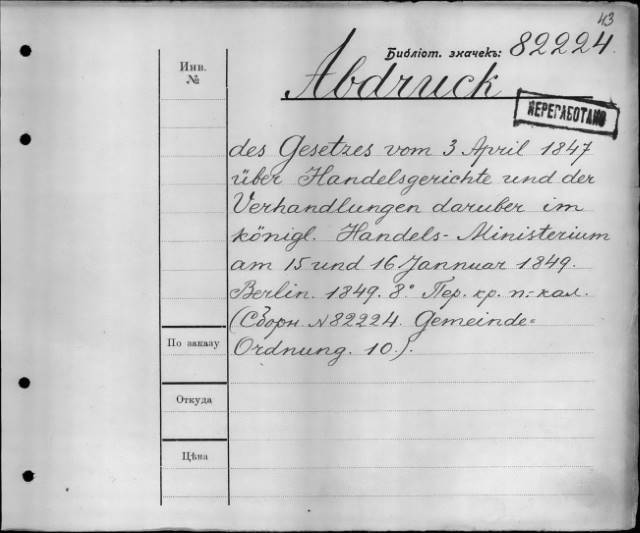 43
Библіот. значекъ: 82224.
Инв.
№
Abdruck
ПЕРЕРАБОТАНО
des Gesetzes vom 3 April 1847
über Handelsgerichte und der
Verhandlungen daruber im
königl. Handels-Ministerium
am 15 und 16 Jannuar 1849.
Berlin. 1849. 8° Пер. кр. п: кал.
(Сборн №82224. Gemeinde=
Ordnung. 10.).
По заказу
Откуда
Цѣна